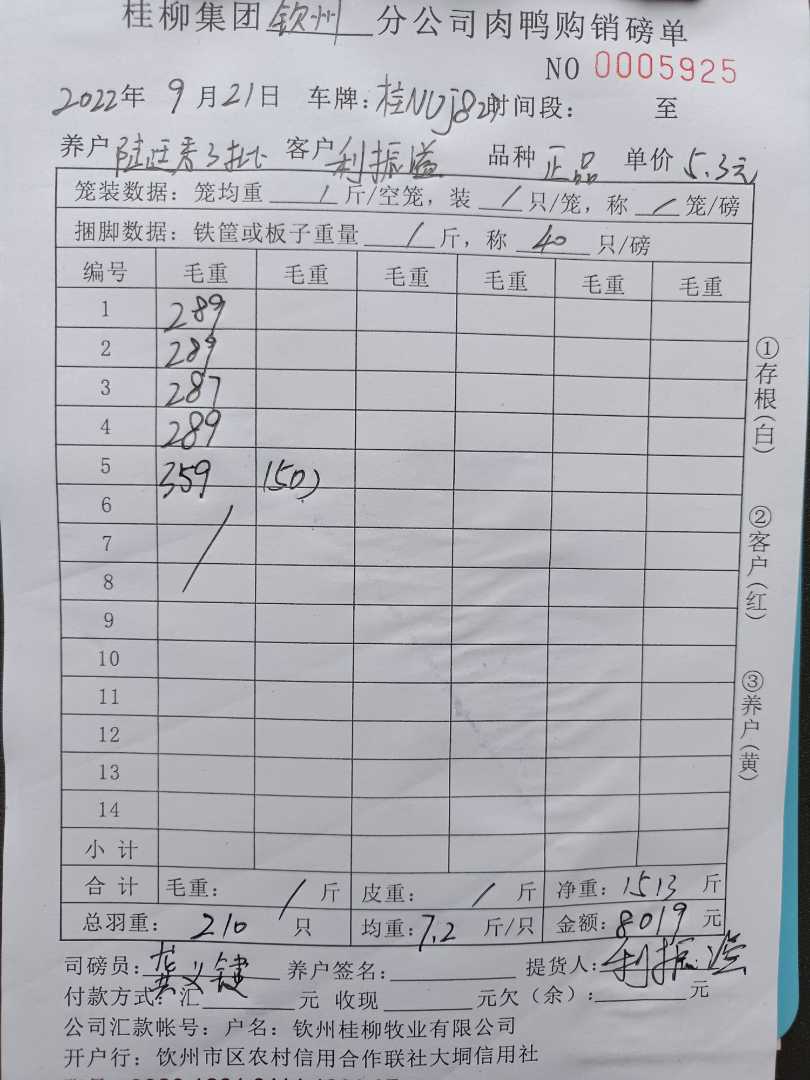 桂柳集团钦州分公司肉鸭购销磅单
NO 0005925
2022年9月21日 车牌: 时间段: 至
养户 客户利振溢 品种正品 单价5.3元
笼装数据:笼均重 / 斤/空笼,装 / 只/笼,称 / 笼/磅
捆脚数据:铁筐或板子重量 / 斤,称 40 只/磅
编号 毛重 毛重 毛重 毛重 毛重 毛重
1 289
2 289
3 287
4 289
5 359 (50)
6
7 /
8
9
10
11
12
13
14
小计
合计 毛重: / 斤 皮重: / 斤 净重:1513 斤
总羽重: 210 只 均重:7.2 斤/只 金额:8019 元
司磅员: 养户签名: 提货人:利振溢
付款方式:汇 元 收现 元欠(余): 元
公司汇款帐号:户名:钦州桂柳牧业有限公司
开户行:钦州市区农村信用合作联社大垌信用社
①存根(白)
②客户(红)
③养户(黄)